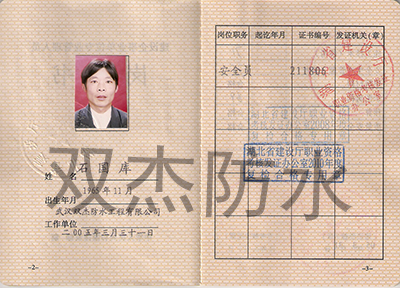 石国库
姓名
1965年11月
出生年月
武汉双杰防水工程有限公司
工作单位
二00五年三月三十一日
-2-
岗位职务 起讫年月 证书编号 发证机关(章)
安全员 211806
湖北省建设厅职业资格
审核发证办公室2010年度
复检合格专用章
-3-
双杰防水